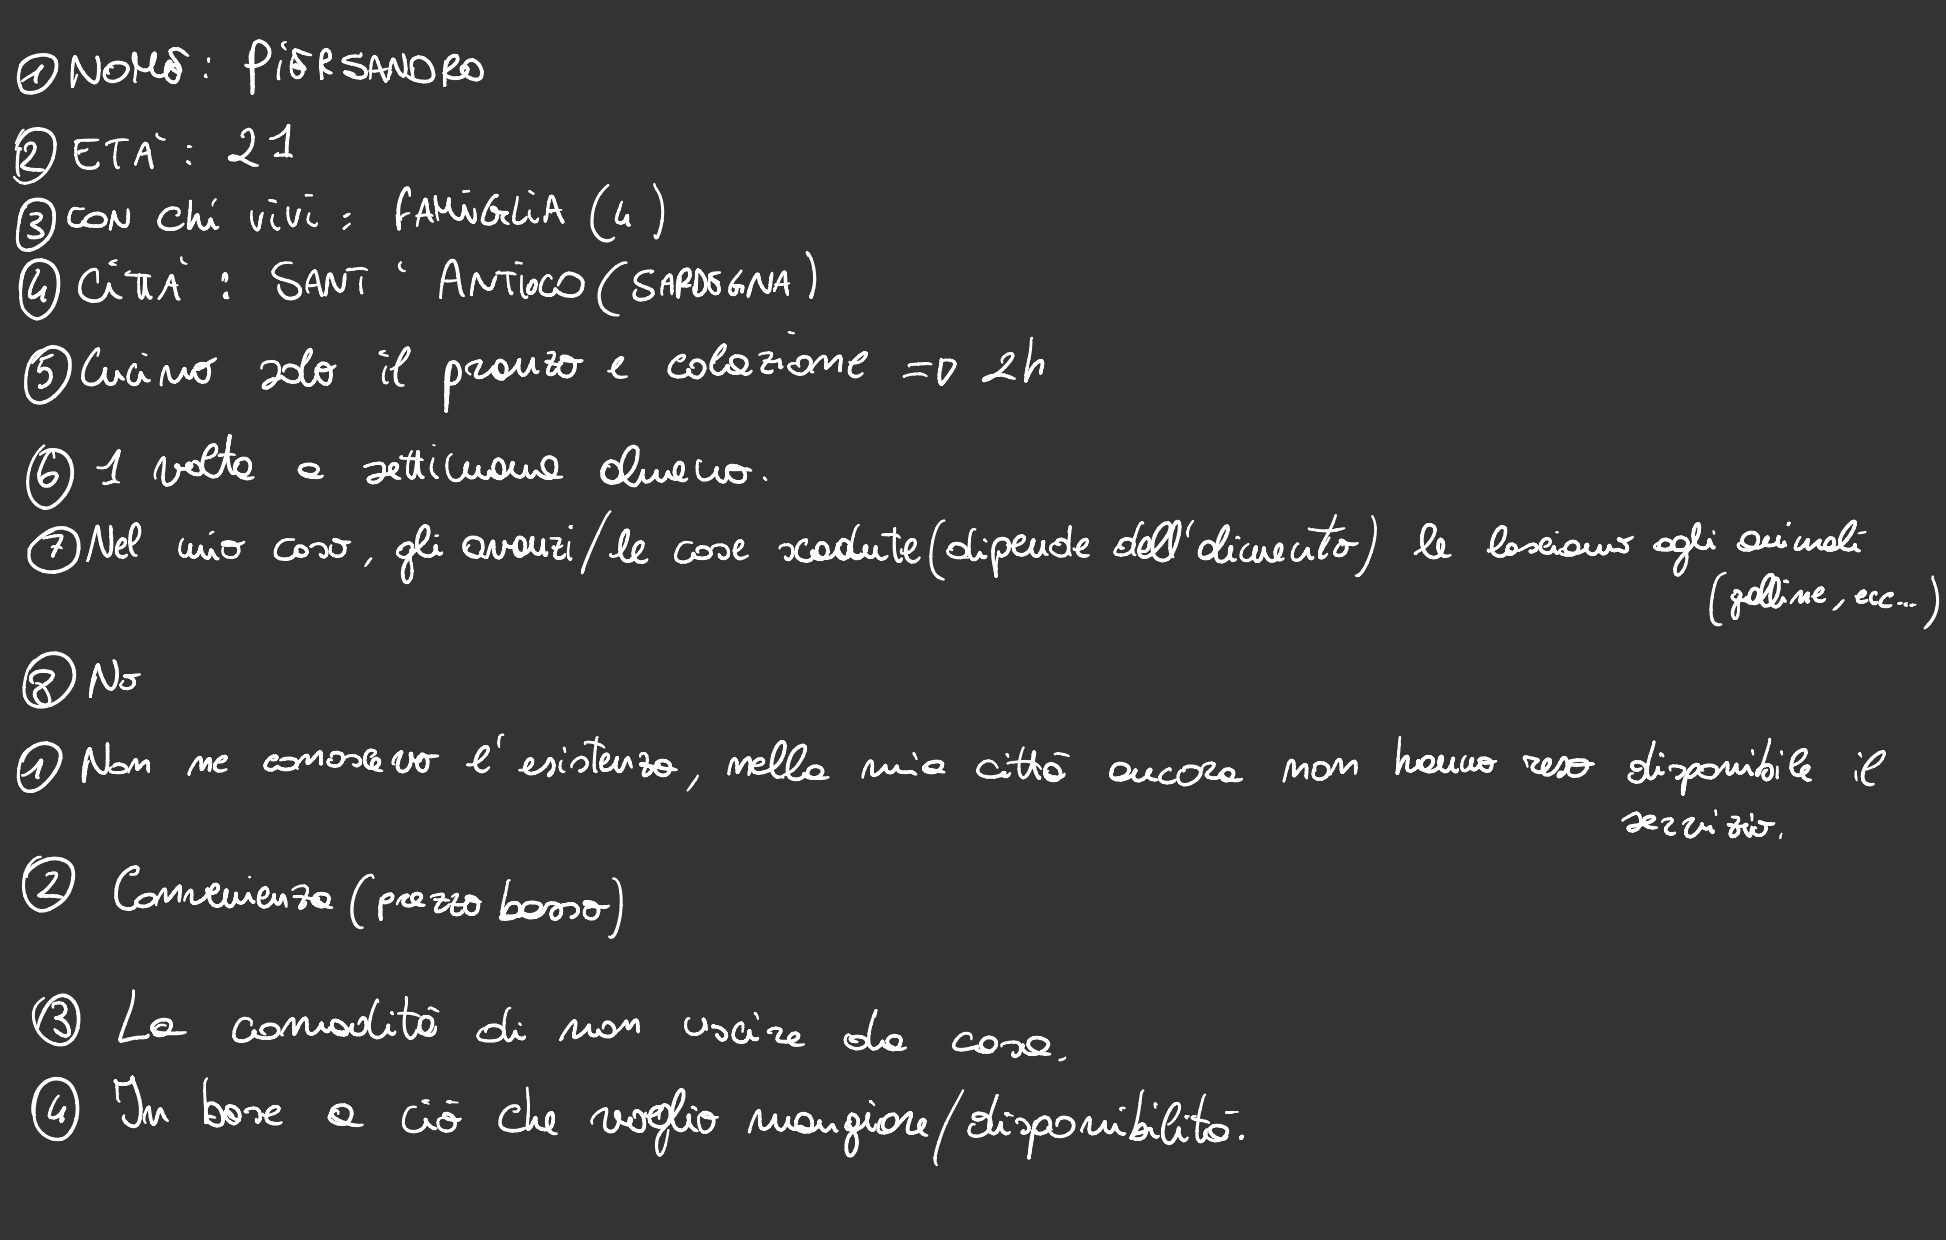 ① NOME: PIERSANDRO
② ETA': 21
③ CON chi vivi: FAMIGLIA (4)
④ CITTA': SANT' ANTIOCO (SARDEGNA)
⑤ Cucino solo il pranzo e colazione => 2h
⑥ 1 volta a settimana almeno.
⑦ Nel mio caso, gli avanzi/le cose scadute (dipende dall'alimento) le lasciamo agli animali
(galline, ecc...)
⑧ No
① Non ne conoscevo l'esistenza, nella mia città ancora non hanno reso disponibile il
servizio.
② Convenienza (prezzo basso)
③ La comodità di non uscire da casa.
④ In base a ciò che voglio mangiare/disponibilità.